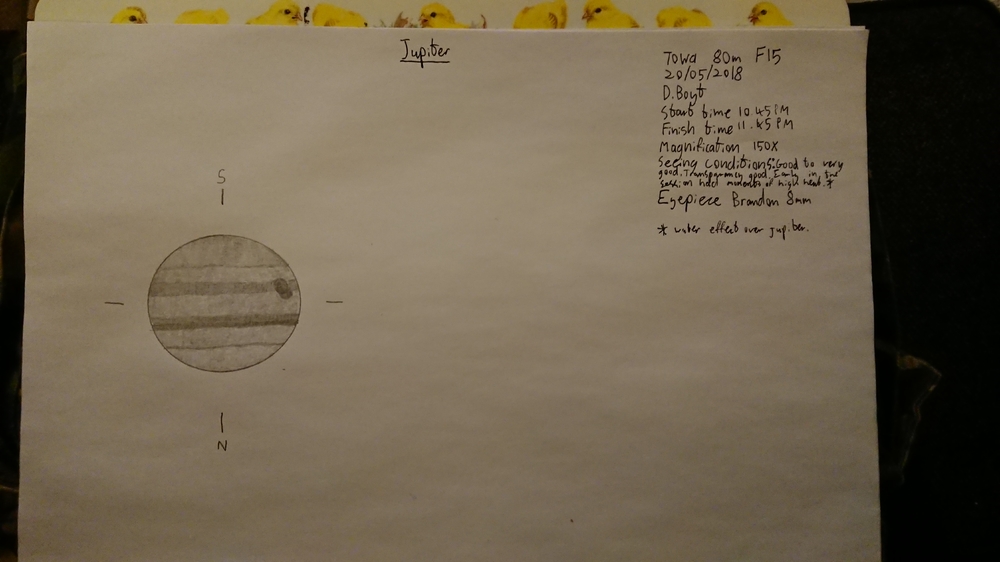 Jupiter
Towa 80m F15
20/05/2018
D.Boyt
Start time 10.45PM
Finish time 11.45PM
Magnification 150X
Seeing conditions: Good to very
good. Transparency good. Early in the
session had moments of high heat. *
Eyepiece Brandon 8mm
* water effect over Jupiter.
S
N